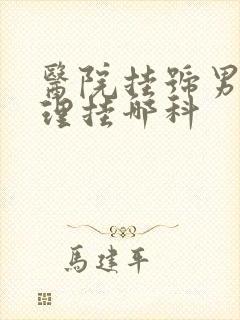 醫院挂號男
理挂哪科
馬建平